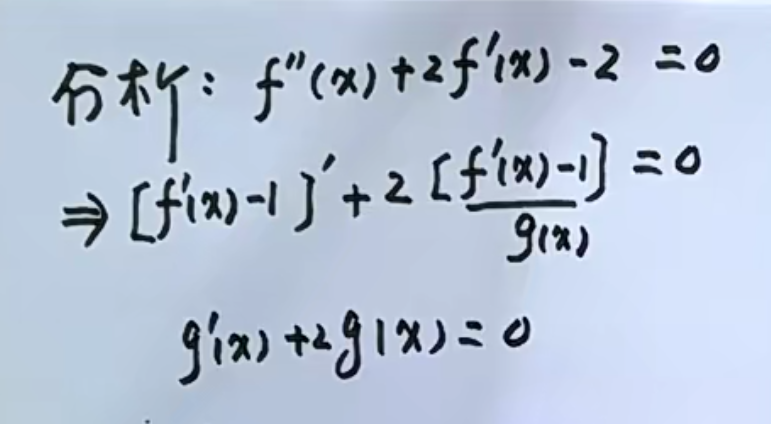 分析: f''(x) + 2f'(x) - 2 = 0
⇒ [f'(x) - 1]' + 2 [f'(x) - 1] = 0
g(x)
g'(x) + 2g(x) = 0